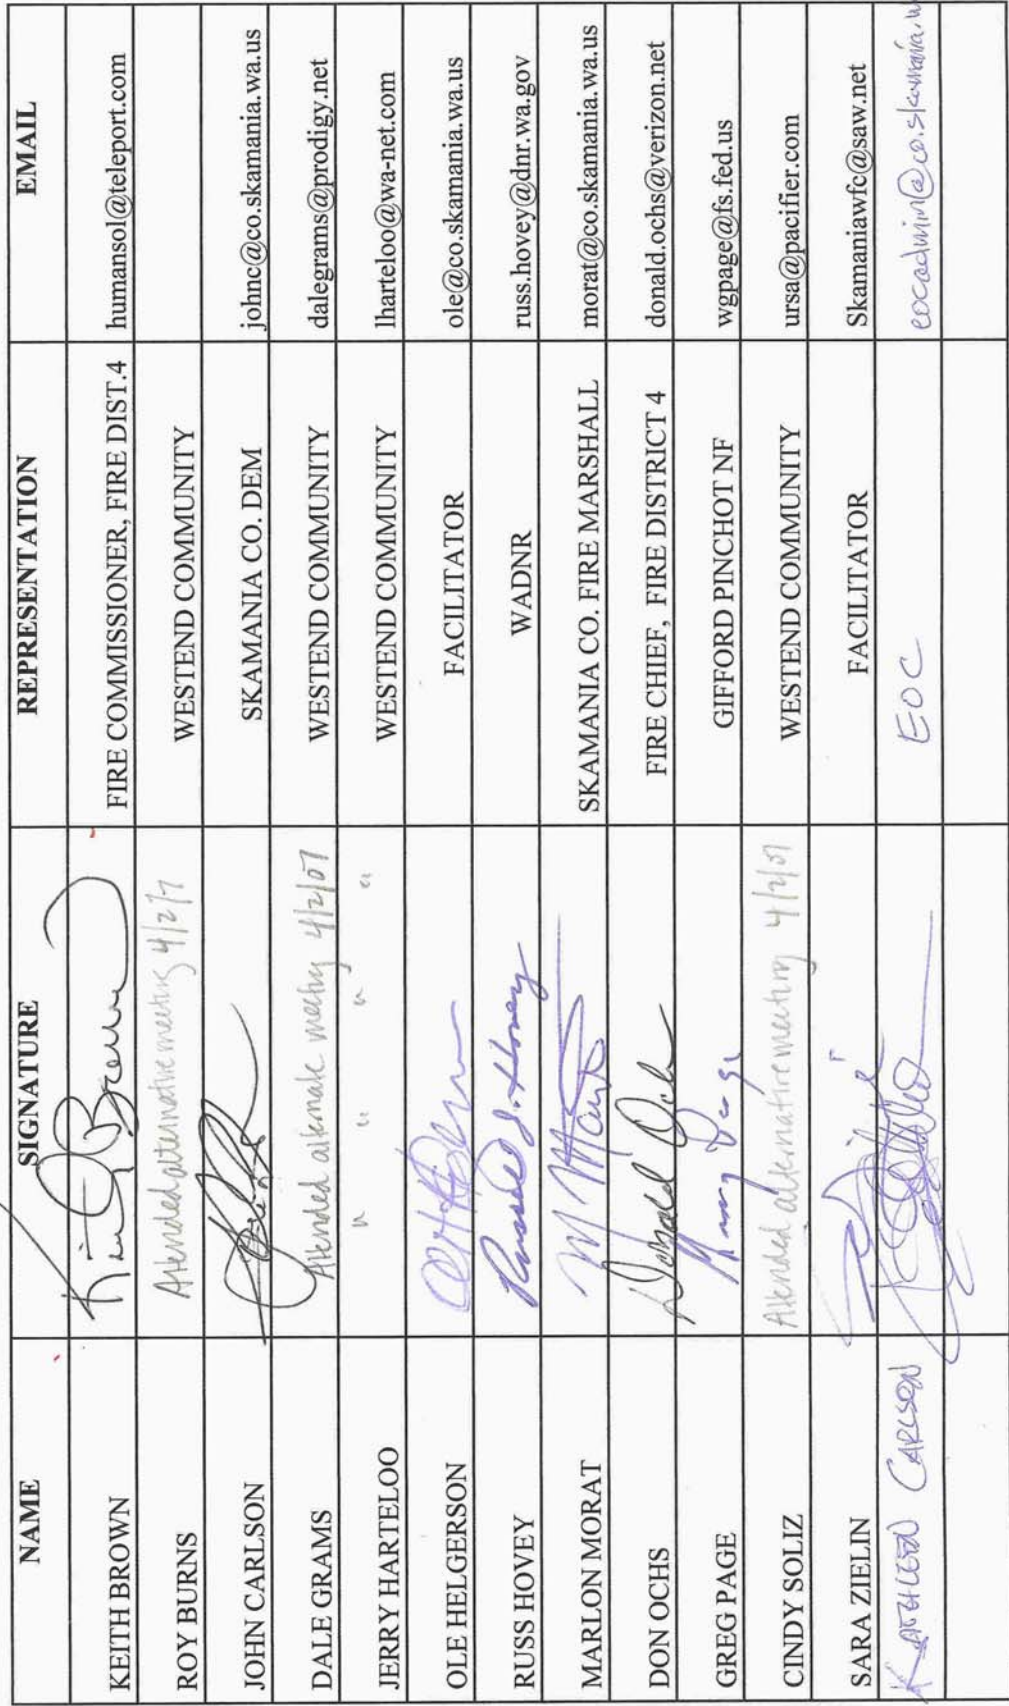 NAME SIGNATURE REPRESENTATION EMAIL
KEITH BROWN Keith Brown FIRE COMMISSIONER, FIRE DIST.4 humansol@teleport.com
ROY BURNS Attended alternative meeting 4/2/7 WESTEND COMMUNITY
JOHN CARLSON SKAMANIA CO. DEM johnc@co.skamania.wa.us
DALE GRAMS Attended alternate meeting 4/2/07 WESTEND COMMUNITY dalegrams@prodigy.net
JERRY HARTELOO " " " " WESTEND COMMUNITY lharteloo@wa-net.com
OLE HELGERSON FACILITATOR ole@co.skamania.wa.us
RUSS HOVEY Russell S. Hovey WADNR russ.hovey@dnr.wa.gov
MARLON MORAT M Morat SKAMANIA CO. FIRE MARSHALL morat@co.skamania.wa.us
DON OCHS Donald Ochs FIRE CHIEF, FIRE DISTRICT 4 donald.ochs@verizon.net
GREG PAGE GIFFORD PINCHOT NF wgpage@fs.fed.us
CINDY SOLIZ Attended alternative meeting 4/2/07 WESTEND COMMUNITY ursa@pacifier.com
SARA ZIELIN FACILITATOR Skamaniawfc@saw.net
KATHLEEN CARLSON EOC eocadmin@co.skamania.w